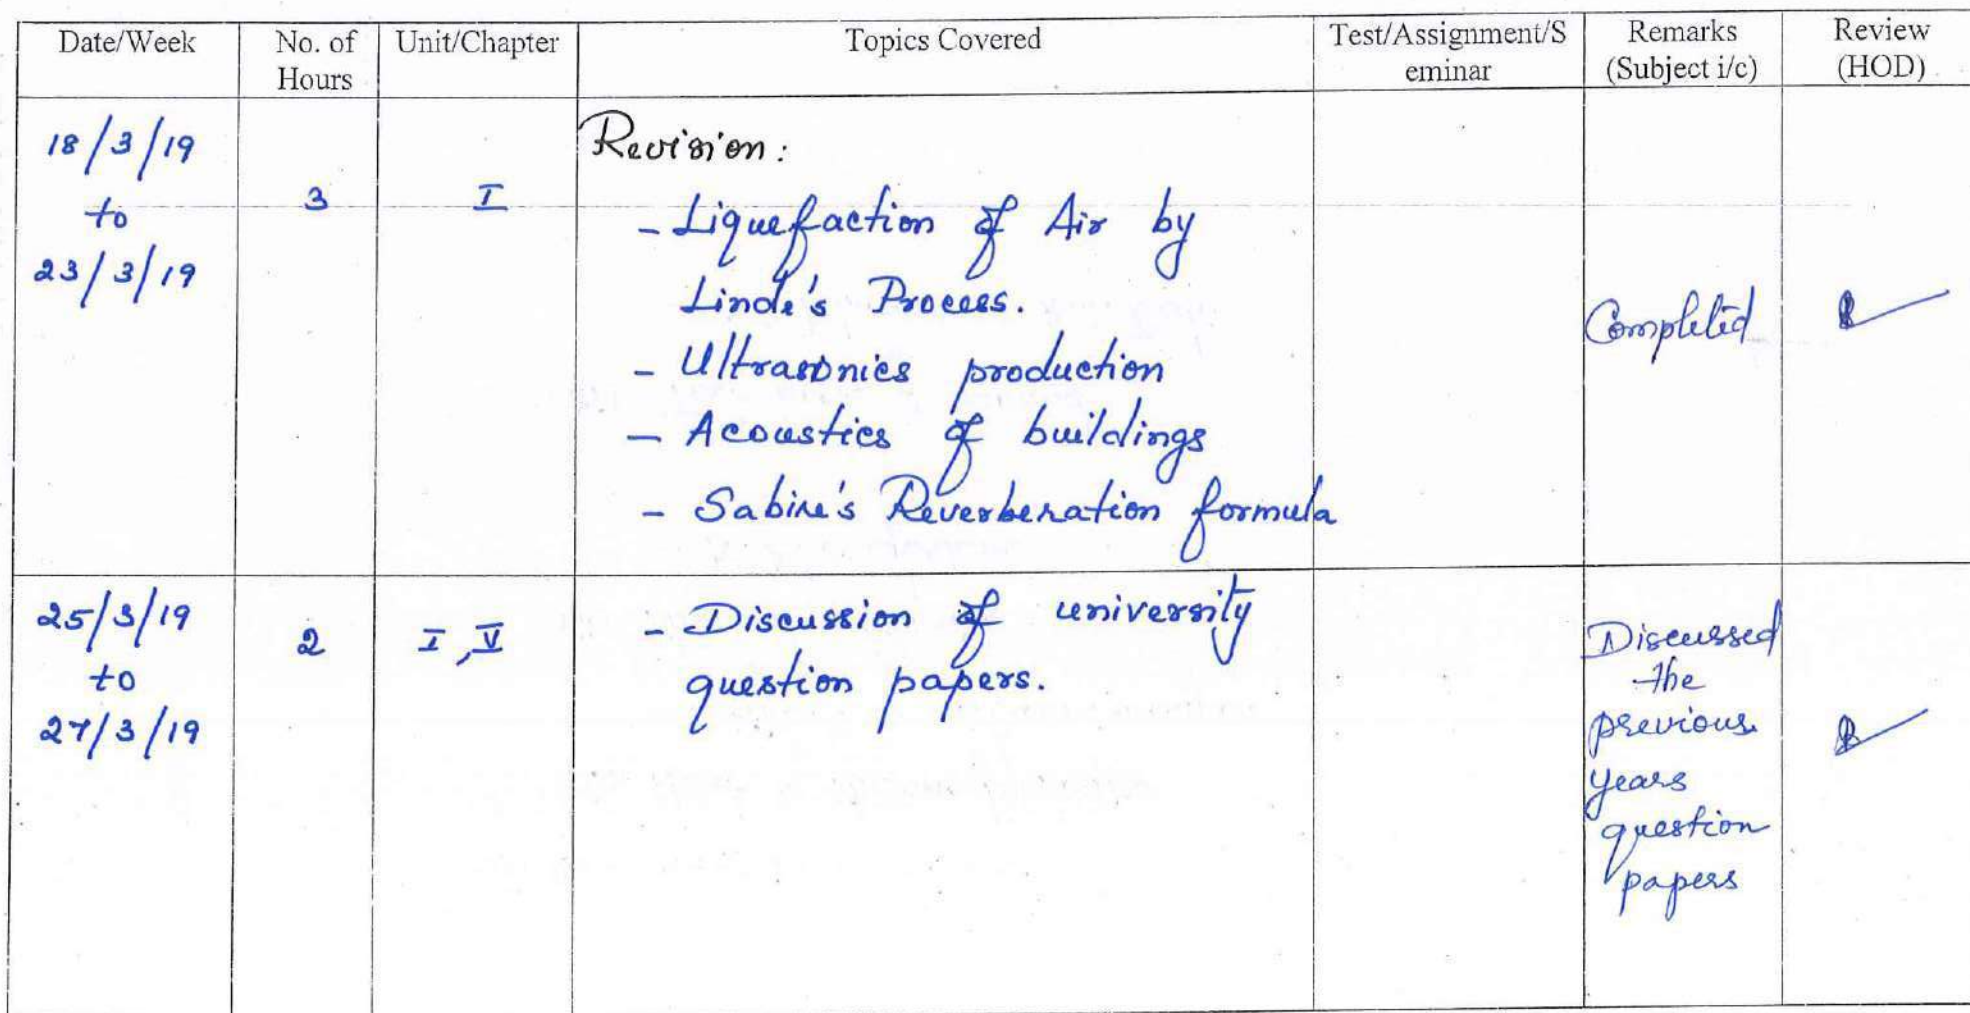 Date/Week No. of Hours Unit/Chapter Topics Covered Test/Assignment/S eminar Remarks (Subject i/c) Review (HOD)
18/3/19
to
23/3/19
3
I
Revision:
- Liquefaction of Air by
Linde's Process.
- Ultrasonics production
- Acoustics of buildings
- Sabine's Reverberation formula
Completed
25/3/19
to
27/3/19
2
I, V
- Discussion of university
question papers.
Discussed
the
previous
years
question
papers